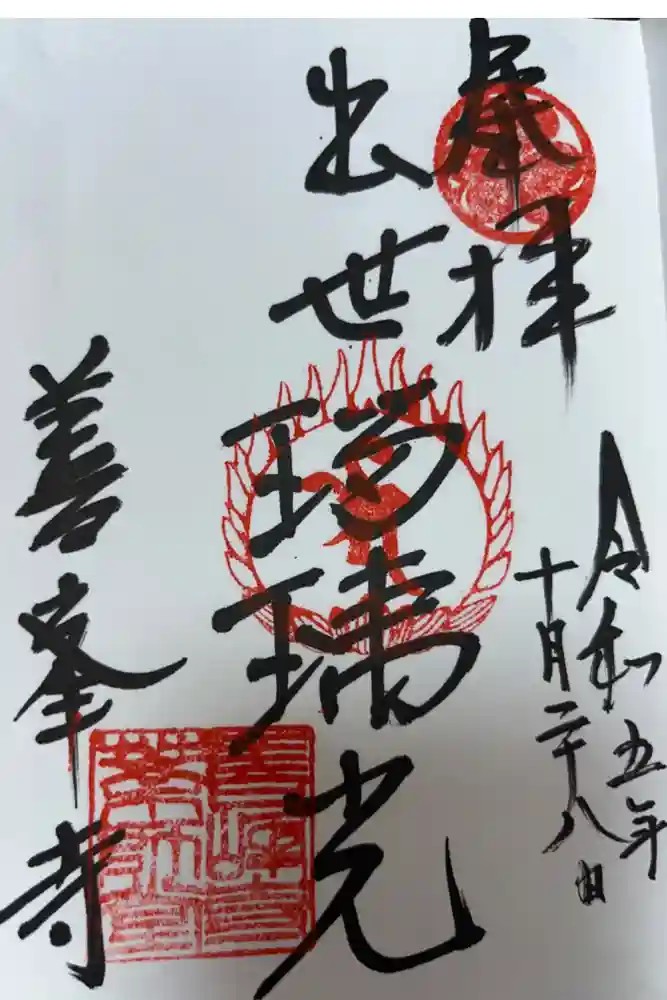 奉拝
令和五年
十月二十八日
出世瑠璃光
善峯寺